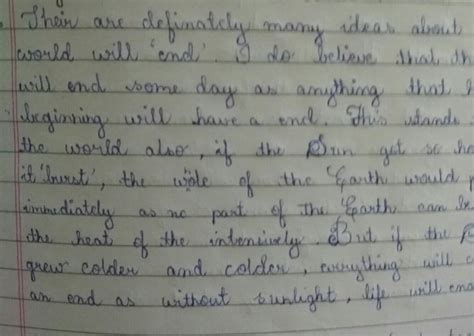 Their are definately many ideas about
world will 'end'. I do believe that th
will end some day as anything that h
beginning will have a end. This stands
the world also, if the Sun got so ho
it 'burst', the wole of the Earth would p
immediately as no part of the Earth can be
the heat of the intensively. But if the S
grew colder and colder, everything will c
an end as without sunlight, life will end